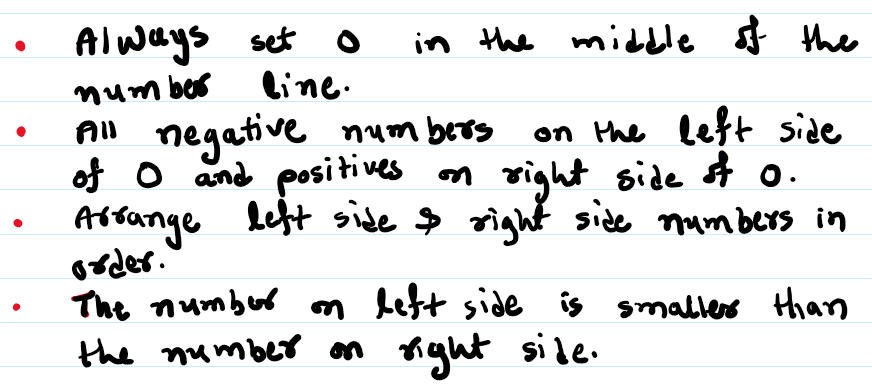 • Always set 0 in the middle of the
number line.
• All negative numbers on the left side
of 0 and positives on right side of 0.
• Arrange left side & right side numbers in
order.
• The number on left side is smaller than
the number on right side.